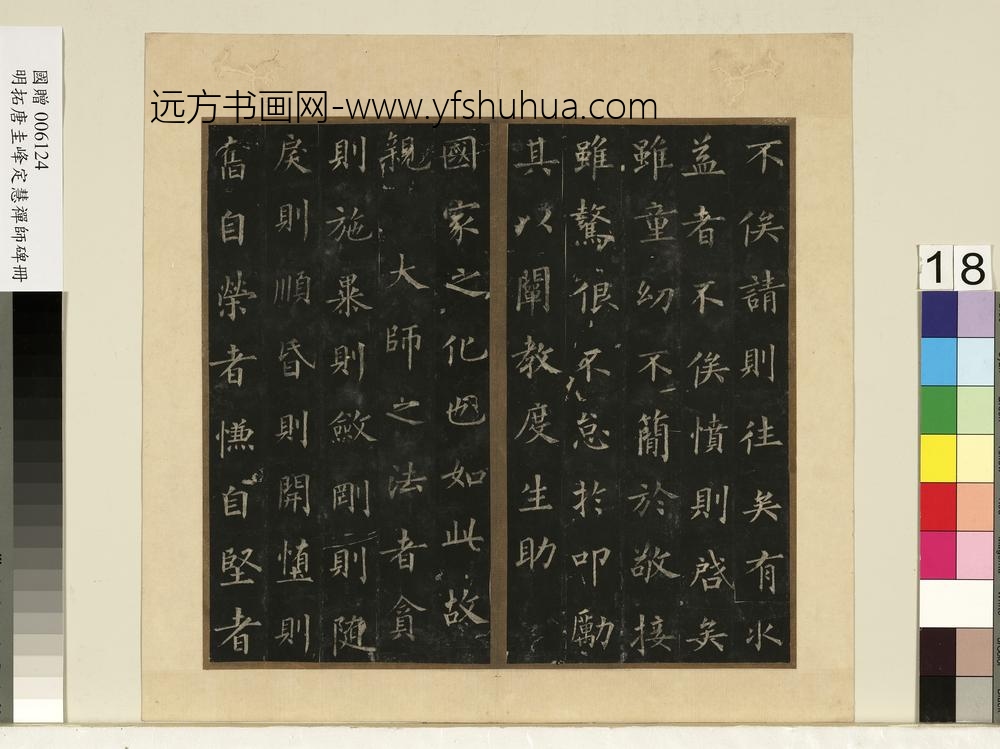 远方书画网-www.yfshuhua.com
國贈 006124
明拓唐圭峰定慧禪師碑冊
18
不俟請則往矣有求
益者不俟憤則啓矣
雖童幼不簡於敬接
雖驁很不怠於叩勵
其以闡教度生助
國家之化也如此故
親 大師之法者貪
則施暴則斂剛則隨
戾則順昏則開惰則
奮自榮者慊自堅者